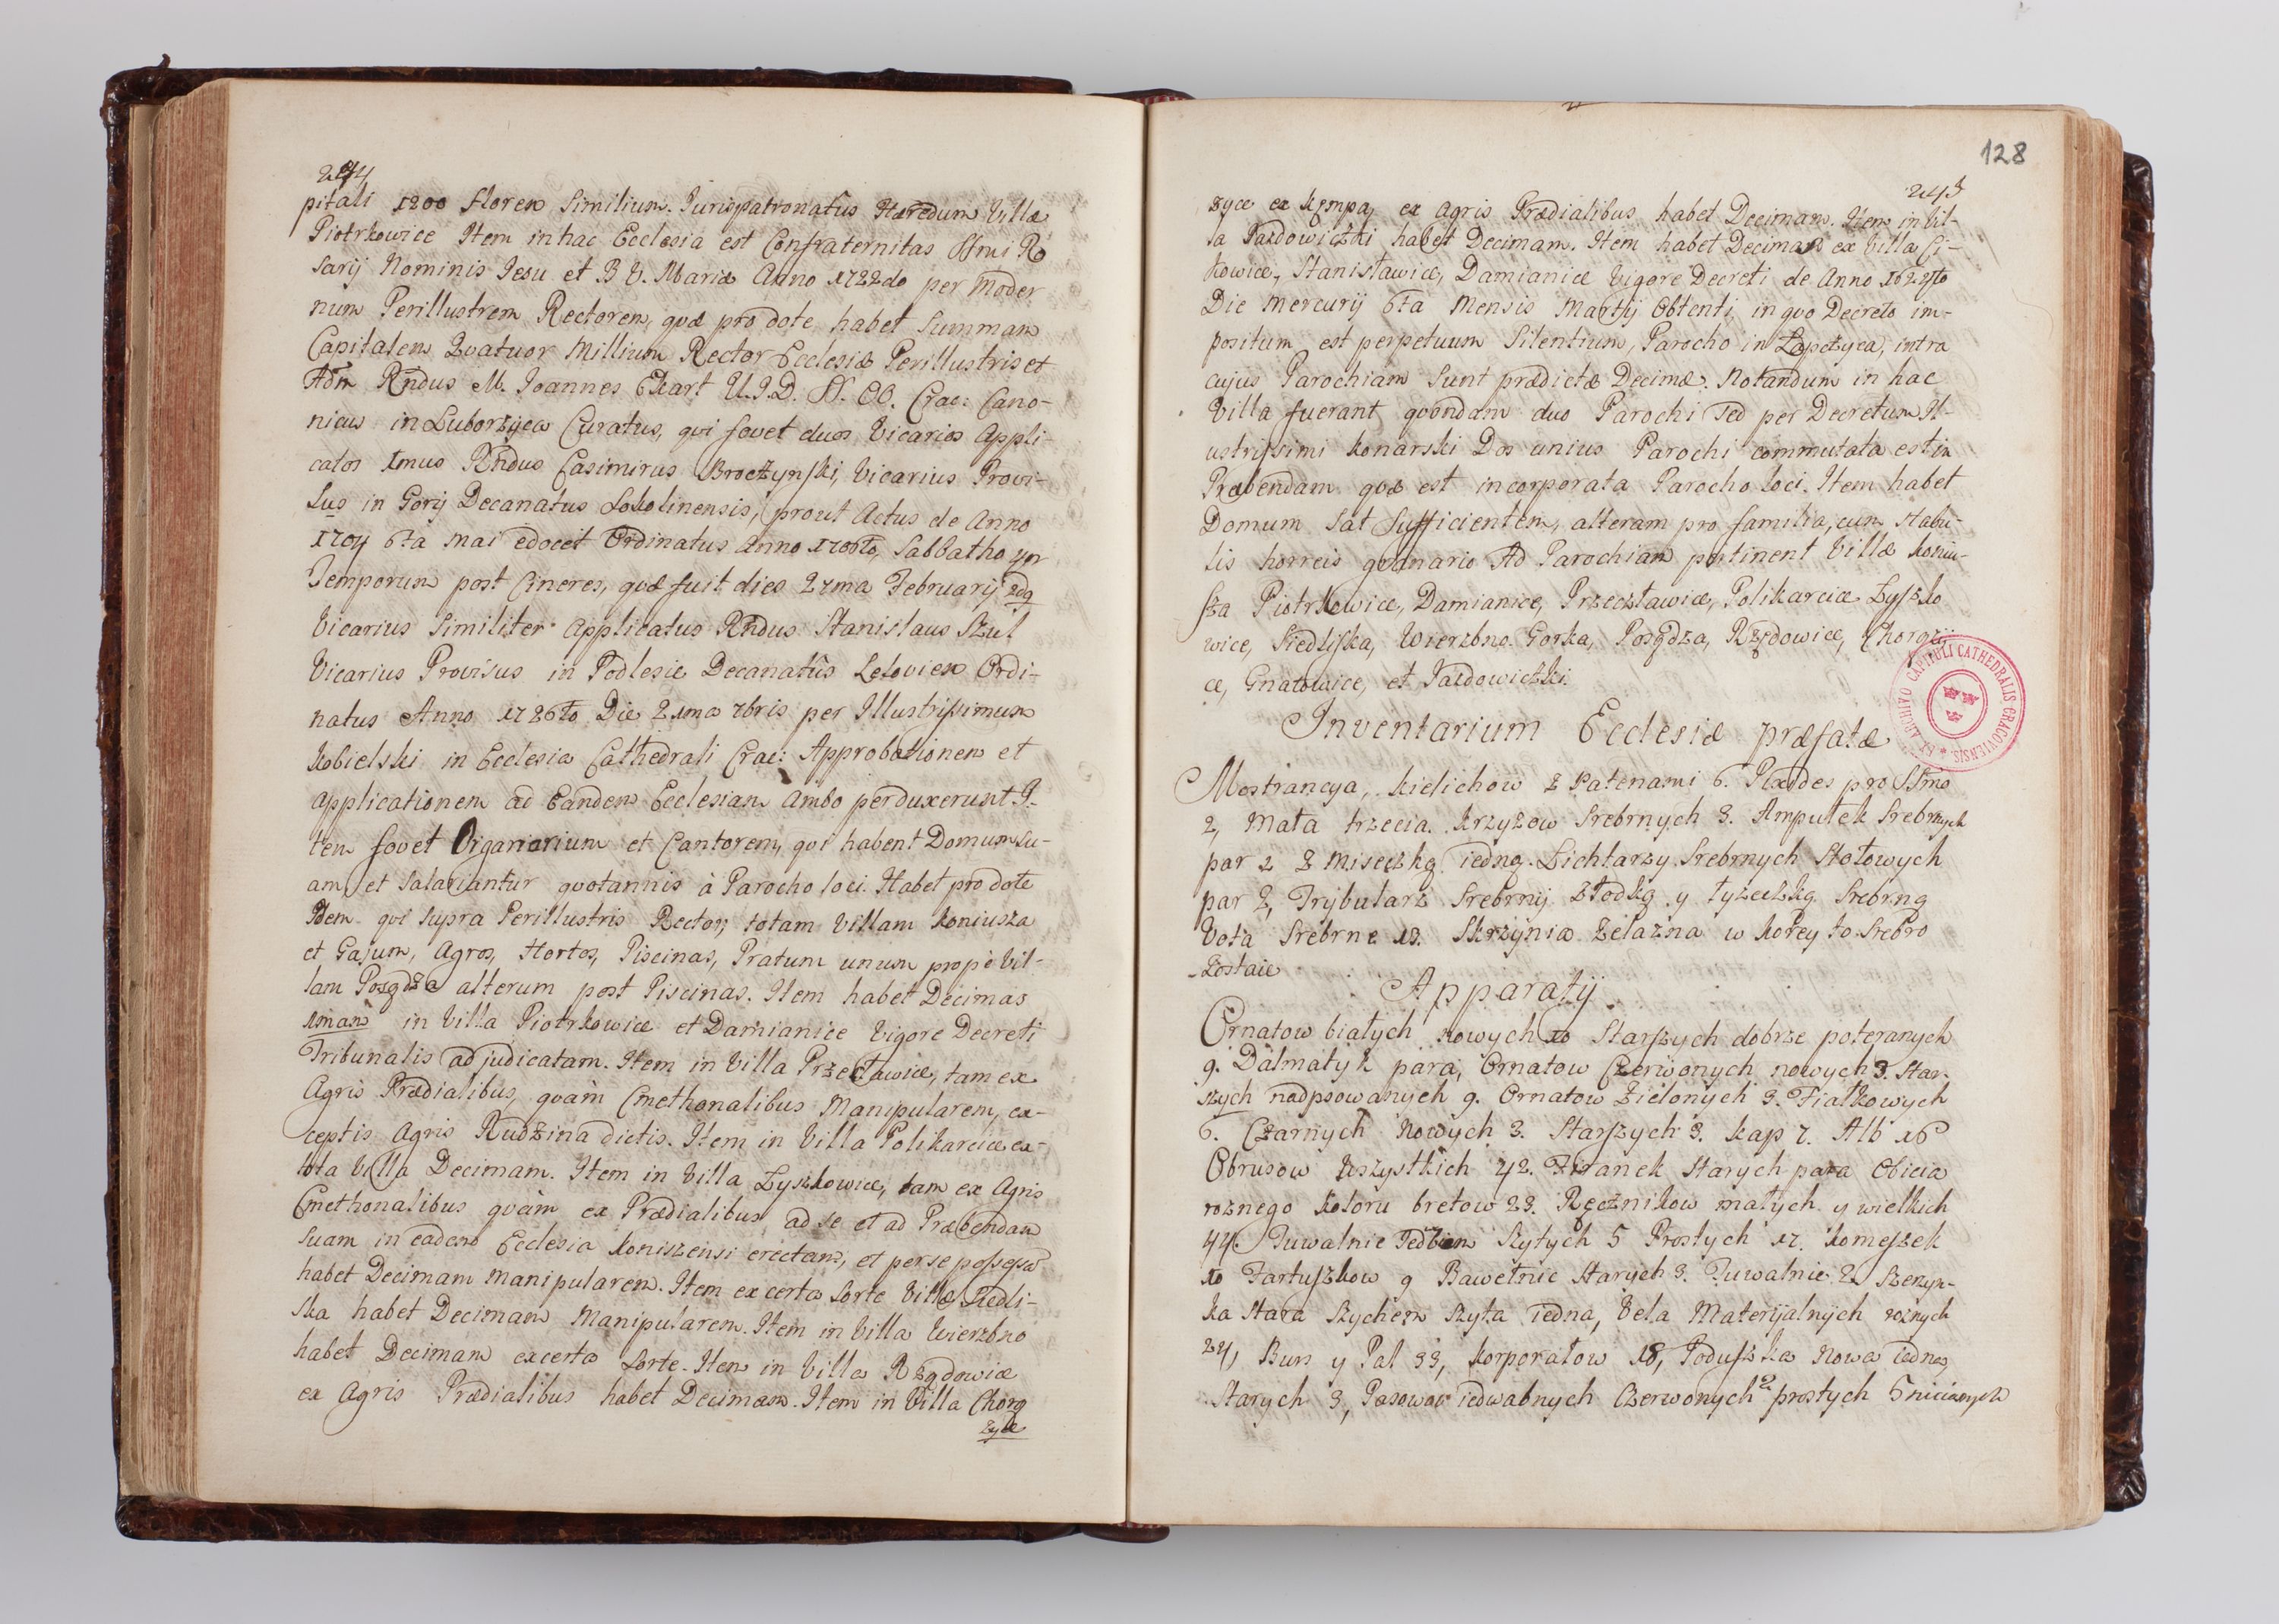 244
pitali 1200 floren Similium. Jurispatronatus Hæredum Villæ
Piotrkowice Item in hac Ecclesia est Confraternitas SSmi Ro
sarij Nominis Jesu et B V. Mariæ Anno 1722do per Moder
num Perillustrem Rectorem, quæ pro dote habet Summam
Capitalem Quatuor Millium Rector Ecclesiæ Perillustris et
Adm Rndus M. Joannes Ekart U.J.D. Crac: Cano-
nicus in Luborzyca Curatus, qui fovet duos Vicarios Appli-
catos 1mus Rndus Casimirus Broczynski, Vicarius Provi-
sus in Gorij Decanatus Sokolinensis, prout Actus de Anno
1704 6ta Mai edocet Ordinatus Anno 1706to, Sabbatho 4or
Temporum post Cineres, quæ fuit dies 27ma Februarij 2dg
Vicarius Similiter Applicatus Rndus Stanislaus Szul
Vicarius Provisus in Podlesie Decanatûs Lelovien Ordi-
natus Anno 1726to Die 21ma 7bris per Illustrissimum
Kobielski in Ecclesia Cathedrali Crac: Approbationem et
applicationem ad Eandem Ecclesiam Ambo perduxerunt. I-
tem fovet Organarium et Cantorem, qui habent Domum Su-
am, et Salariantur quotannis à Parocho loci. Habet pro dote
Idem qui Supra Perillustris Rector, totam Villam Koniusza
et Gajum, Agros, Hortos, Piscinas, Pratum unum propè Vil-
lam Posądza alterum post Piscinas. Item habet Decimas
1mam in Villa Piotrkowice et Damianice Vigore Decreti
Tribunalis adjudicatam. Item in Villa Przecławice, tam ex
Agris Prædialibus, quàm Cmethonalibus Manipularem, ex-
ceptis Agris Rudzina dictis. Item in Villa Polikarcice ex
tota Villa Decimam. Item in Villa Łyszkowice, tam ex Agris
Cmethonalibus quàm ex Prædialibus ad se et ad Præbendam
Suam in eadem Ecclesia Koniszensi erectam, et per se possessa
habet Decimam Manipularem. Item ex certa Sorte Villæ Siedli-
ska habet Decimam Manipularem. Item in Villa Wierzbno
habet Decimam ex certa Sorte. Item in Villa Rzędowice
ex Agris Prædialibus habet Decimam. Item in Villa Chorą
zyce
128
245
zyce ex Kęmpa, ex Agris Prædialibus habet Decimam. Item in Vil-
la Pazdowiczki habet Decimam. Item habet Decimam ex Villa Ci-
kowice, Stanisławice, Damianice Vigore Decreti de Anno
Die Mercurij 6ta Mensis Martij Obtenti, in quo Decreto im-
positum est perpetuum Silentium, Parocho in Łapczyca, intra
cujus Parochiam Sunt prædictæ Decimæ. Notandum in hac
Villa fuerant quondam duo Parochi Sed per Decretum Il-
ustrissimi Konarski Dos unius Parochi commutata est in
Præbendam quæ est incorporata Parocho loci. Item habet
Domum Sat Sufficientem, alteram pro familia, cum Stabu-
lis horreis granario Ad Parochiam pertinent Villæ Koniu-
sza Piotrkowice, Damianice, Przecztawice, Polikarcice Łyszko
wice, Siedliska, Wierzbno Gorka, Posądza, Rzędowice, Chorązij
ce, Gnatowice, et Pazdowiczki.
EX ARCHIVO CAPITULI CATHEDRALIS CRACOVIENSIS
Inventarium Ecclesiæ præfatæ
Mostrancya, Kielichow z Patenami 6. Pæddes pro SSmo
2, Mała trzecia. Krzyzow Srebrnych 3. Ampułek Srebrnych
par 2 z Miseczką iedną. Lichtarzy Srebrnych Stołowych
par 2, Trybularz Srebrnij z łodką y łyzeczką Srebrną
Vota Srebrne 13. Skrzynia Zelazna w Ktorey to Srebro
zostaie
Apparatij
Ornatow białych nowych 10 Starszych dobrze poteranych
9. Dalmatyk para, Ornatow Czerwonych nowych 3. Star-
szych nadpsowanych 9. Ornatow Zielonych 3. Fiałkowych
6. Czarnych Nowych 3. Starszych 3. Kap 7. Alb 16
Obrusow Wszystkich 42. Firanek Starych para Obicia
roznego Koloru bretow 23. Ręcznikow małych y wielkich
44. Tuwalnie Jedbiem Szytych 5 Prostych 17. Komeszek
10 Fartuszkow 9 Bawełnic Starych 3. Tuwalnie 2
ka Stara Szychem Szyta iedna, Vela Materijalnych roznych
24, Burs y Pal 33, Korporałow 18, Poduszka Nowa iedna
Starych 3, Pasowow iedwabnych Czerwonych 2 prostych 5 nicianych